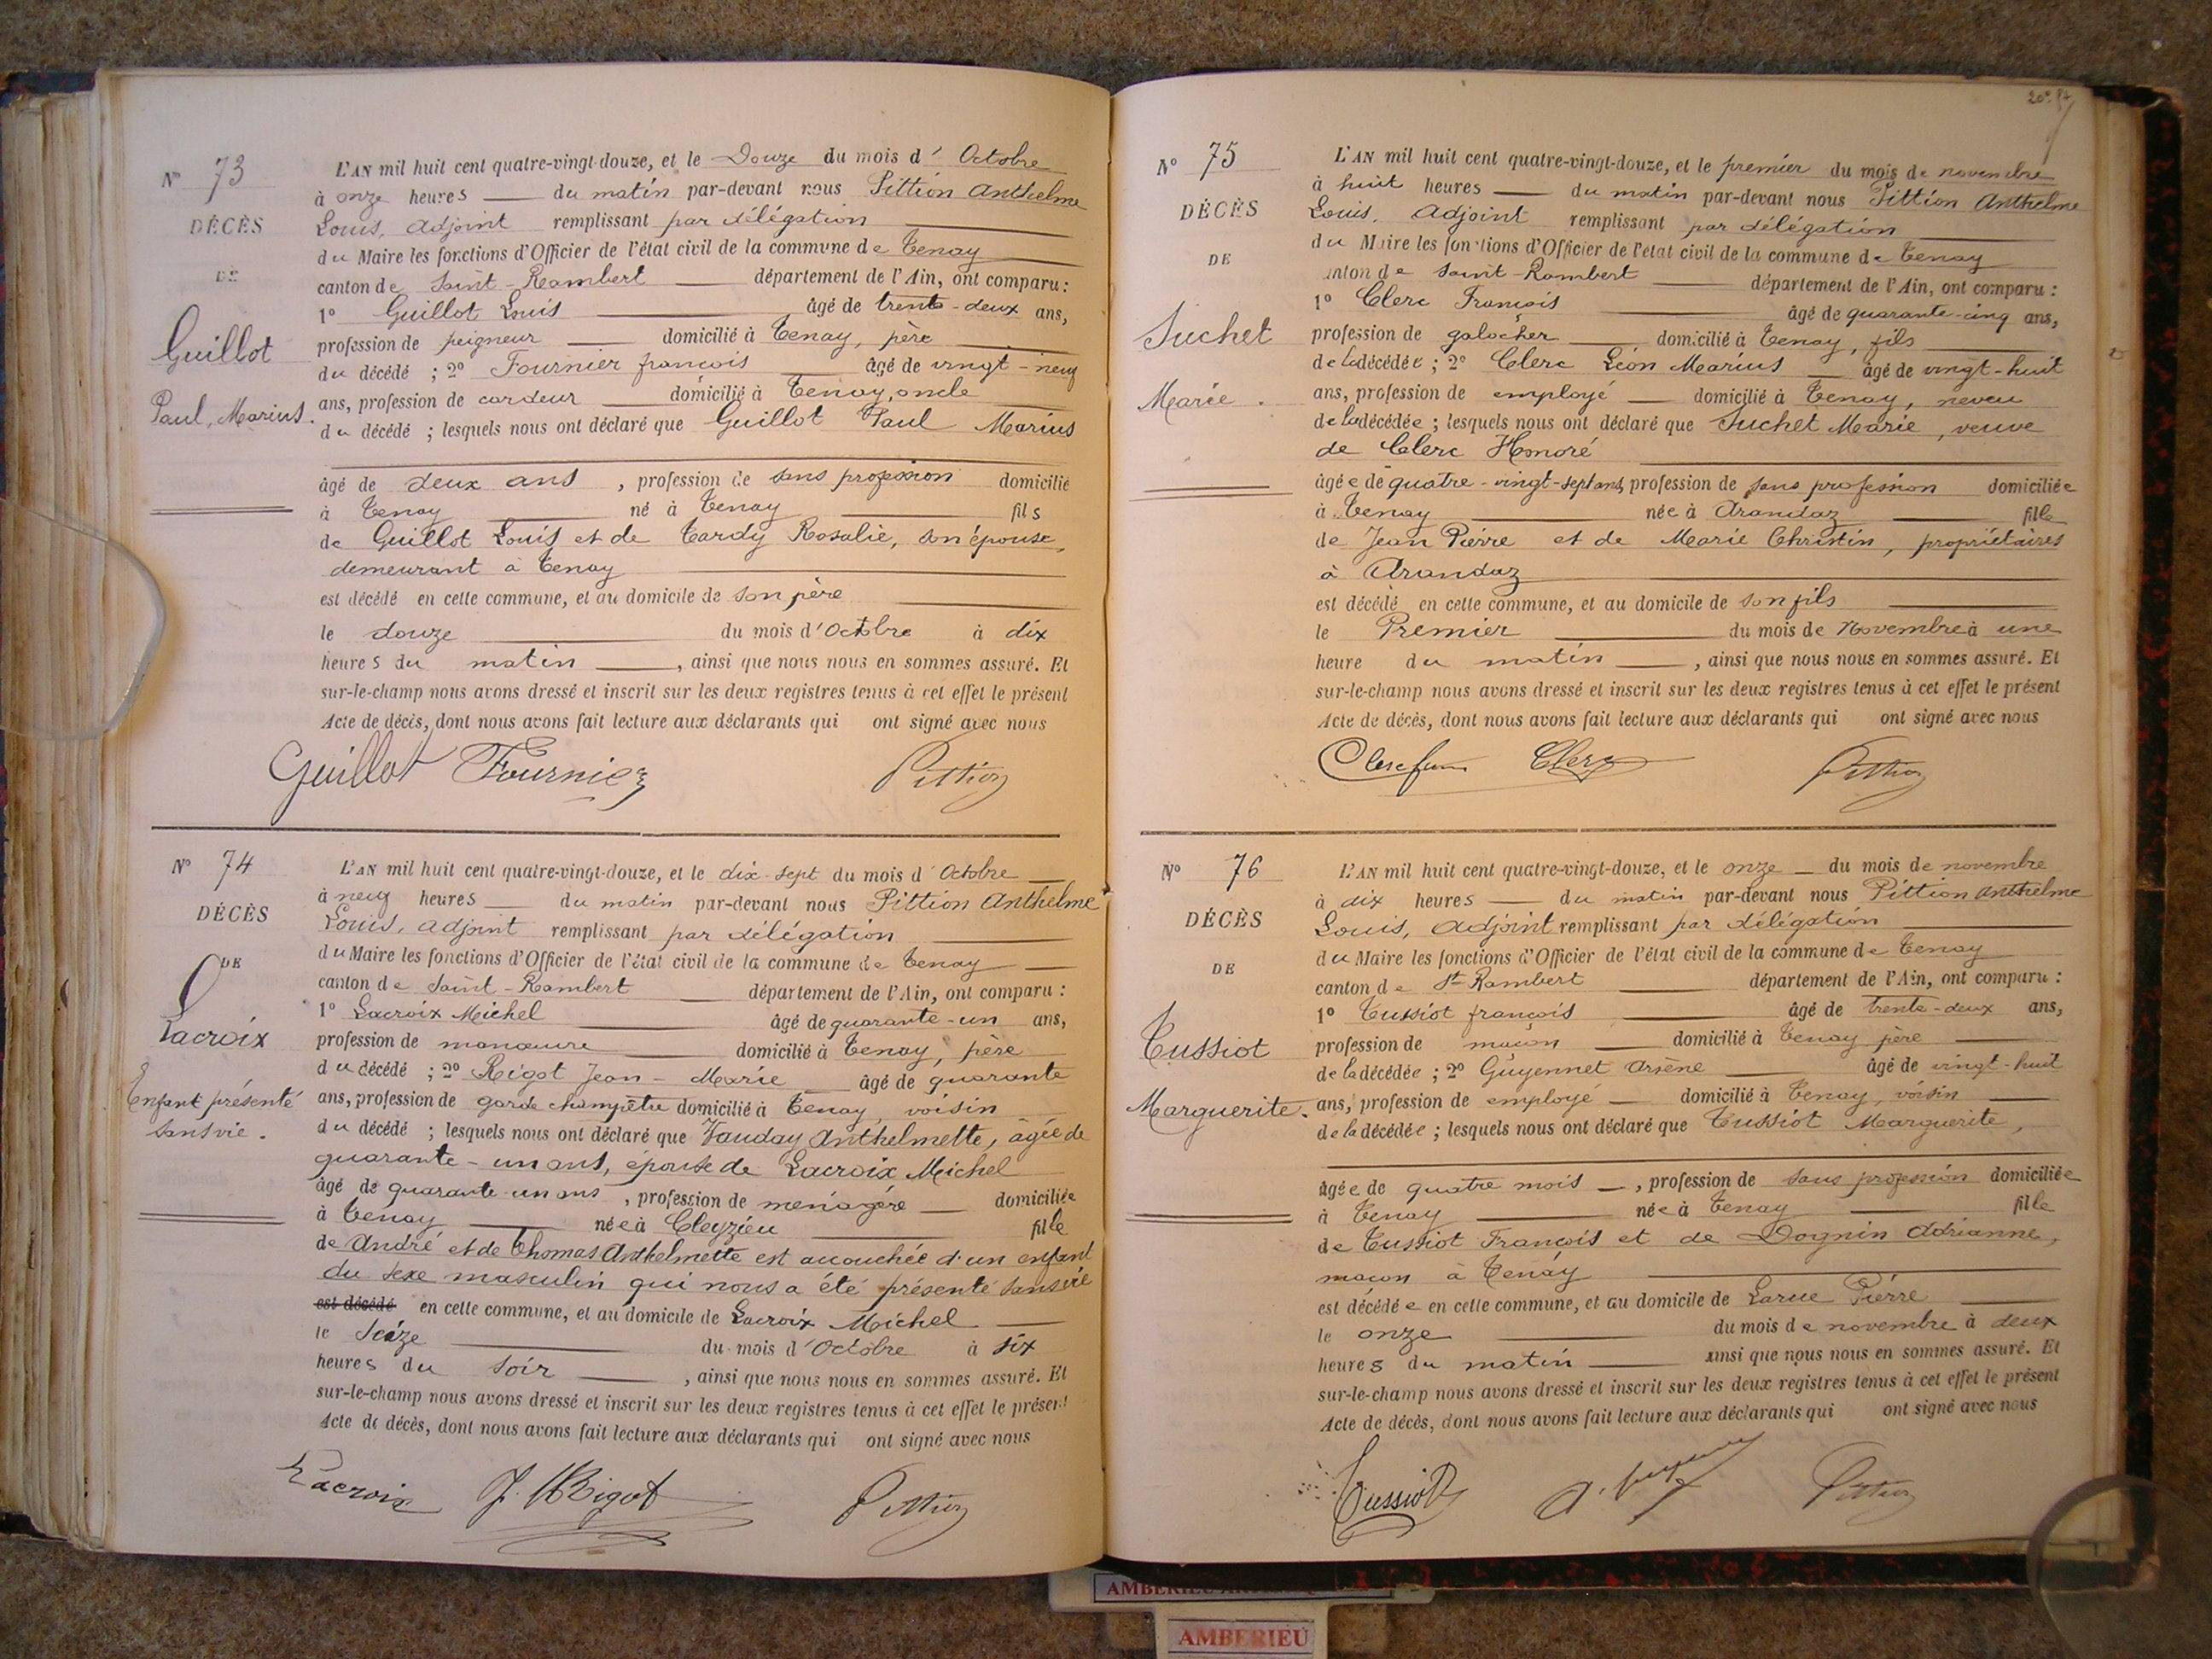 N° 73
DÉCÈS
DE
Guillot
Paul, Marius.
L'AN mil huit cent quatre-vingt-douze, et le Douze du mois d' Octobre
à onze heures du matin par-devant nous Pittion Anthelme
Louis, adjoint remplissant par délégation
du Maire les fonctions d'Officier de l'état civil de la commune de Tenay
canton de Saint-Rambert département de l'Ain, ont comparu :
1° Guillot Louis âgé de trente-deux ans,
profession de peigneur domicilié à Tenay, père
du décédé ; 2° Fournier françois âgé de vingt-neuf
ans, profession de cardeur domicilié à Tenay, oncle
du décédé ; lesquels nous ont déclaré que Guillot Paul Marius
âgé de deux ans , profession de sans profession domicilié
à Tenay né à Tenay fils
de Guillot Louis et de Tardy Rosalie, son épouse,
demeurant à Tenay
est décédé en cette commune, et au domicile de son père
le douze du mois d'Octobre à dix
heures du matin , ainsi que nous nous en sommes assuré. Et
sur-le-champ nous avons dressé et inscrit sur les deux registres tenus à cet effet le présent
Acte de décès, dont nous avons fait lecture aux déclarants qui ont signé avec nous
Guillot Fournier Pittion
N° 74
DÉCÈS
DE
Lacroix
Enfant présenté
sans vie.
L'AN mil huit cent quatre-vingt-douze, et le dix-sept du mois d'Octobre
à neuf heures du matin par-devant nous Pittion Anthelme
Louis, adjoint remplissant par délégation
du Maire les fonctions d'Officier de l'état civil de la commune de Tenay
canton de Saint-Rambert département de l'Ain, ont comparu :
1° Lacroix Michel âgé de quarante-un ans,
profession de manœuvre domicilié à Tenay, père
du décédé ; 2° Rigot Jean-Marie âgé de quarante
ans, profession de garde champêtre domicilié à Tenay, voisin
du décédé ; lesquels nous ont déclaré que Vauday Anthelmette, âgée de
quarante-un ans, épouse de Lacroix Michel
âgé de quarante-un ans , profession de ménagère domiciliée
à Tenay née à Cleyzieu fille
de André et de Thomas Anthelmette est accouchée d'un enfant
du sexe masculin qui nous a été présenté sans vie
est décédé en cette commune, et au domicile de Lacroix Michel
le Seize du mois d'Octobre à six
heures du soir , ainsi que nous nous en sommes assuré. Et
sur-le-champ nous avons dressé et inscrit sur les deux registres tenus à cet effet le présent
Acte de décès, dont nous avons fait lecture aux déclarants qui ont signé avec nous
Lacroix J. M Rigot Pittion
N° 75
DÉCÈS
DE
Suchet
Marie.
L'AN mil huit cent quatre-vingt-douze, et le premier du mois de novembre
à huit heures du matin par-devant nous Pittion Anthelme
Louis, adjoint remplissant par délégation
du Maire les fonctions d'Officier de l'état civil de la commune de Tenay
canton de Saint-Rambert département de l'Ain, ont comparu :
1° Clerc François âgé de quarante-cinq ans,
profession de galocher domicilié à Tenay, fils
de la décédée ; 2° Clerc Léon Marius âgé de vingt-huit
ans, profession de employé domicilié à Tenay, neveu
de la décédée ; lesquels nous ont déclaré que Suchet Marie, veuve
de Clerc Honoré
âgée de quatre-vingt-sept ans, profession de sans profession domiciliée
à Tenay née à Arandaz fille
de Jean Pierre et de Marie Christin, propriétaires
à Arandaz
est décédé en cette commune, et au domicile de son fils
le Premier du mois de Novembre à une
heure du matin , ainsi que nous nous en sommes assuré. Et
sur-le-champ nous avons dressé et inscrit sur les deux registres tenus à cet effet le présent
Acte de décès, dont nous avons fait lecture aux déclarants qui ont signé avec nous
Clerc Pittion
N° 76
DÉCÈS
DE
Tussiot
Marguerite.
L'AN mil huit cent quatre-vingt-douze, et le onze du mois de novembre
à dix heures du matin par-devant nous Pittion Anthelme
Louis, adjoint remplissant par délégation
du Maire les fonctions d'Officier de l'état civil de la commune de Tenay
canton de St-Rambert département de l'Ain, ont comparu :
1° Tussiot françois âgé de trente-deux ans,
profession de maçon domicilié à Tenay père
de la décédée ; 2° Guyennet Arsène âgé de vingt-huit
ans, profession de employé domicilié à Tenay, voisin
de la décédée ; lesquels nous ont déclaré que Tussiot Marguerite,
âgée de quatre mois , profession de sans profession domiciliée
à Tenay née à Tenay fille
de Tussiot François et de Dognin Adrianne,
maçon à Tenay
est décédée en cette commune, et au domicile de Larue Pierre
le onze du mois de novembre à deux
heures du matin ainsi que nous nous en sommes assuré. Et
sur-le-champ nous avons dressé et inscrit sur les deux registres tenus à cet effet le présent
Acte de décès, dont nous avons fait lecture aux déclarants qui ont signé avec nous
Tussiot Pittion
AMBERIEU